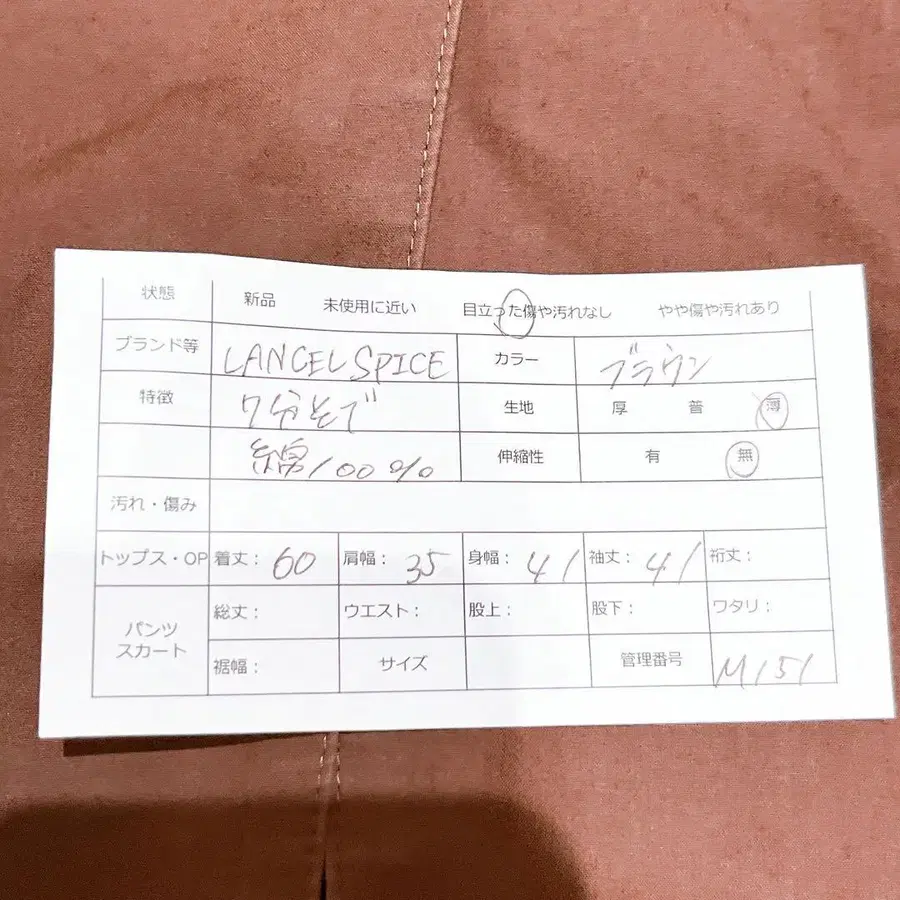 状態 新品 未使用に近い 目立った傷や汚れなし やや傷や汚れあり
ブランド等 LANCEL SPICE カラー ブラウン
特徴 7分そで 生地 厚 普 薄
綿100% 伸縮性 有 無
汚れ・傷み
トップス・OP 着丈: 60 肩幅: 35 身幅: 41 袖丈: 41 裄丈:
パンツ スカート 総丈: ウエスト: 股上: 股下: ワタリ:
裾幅: サイズ 管理番号 M151